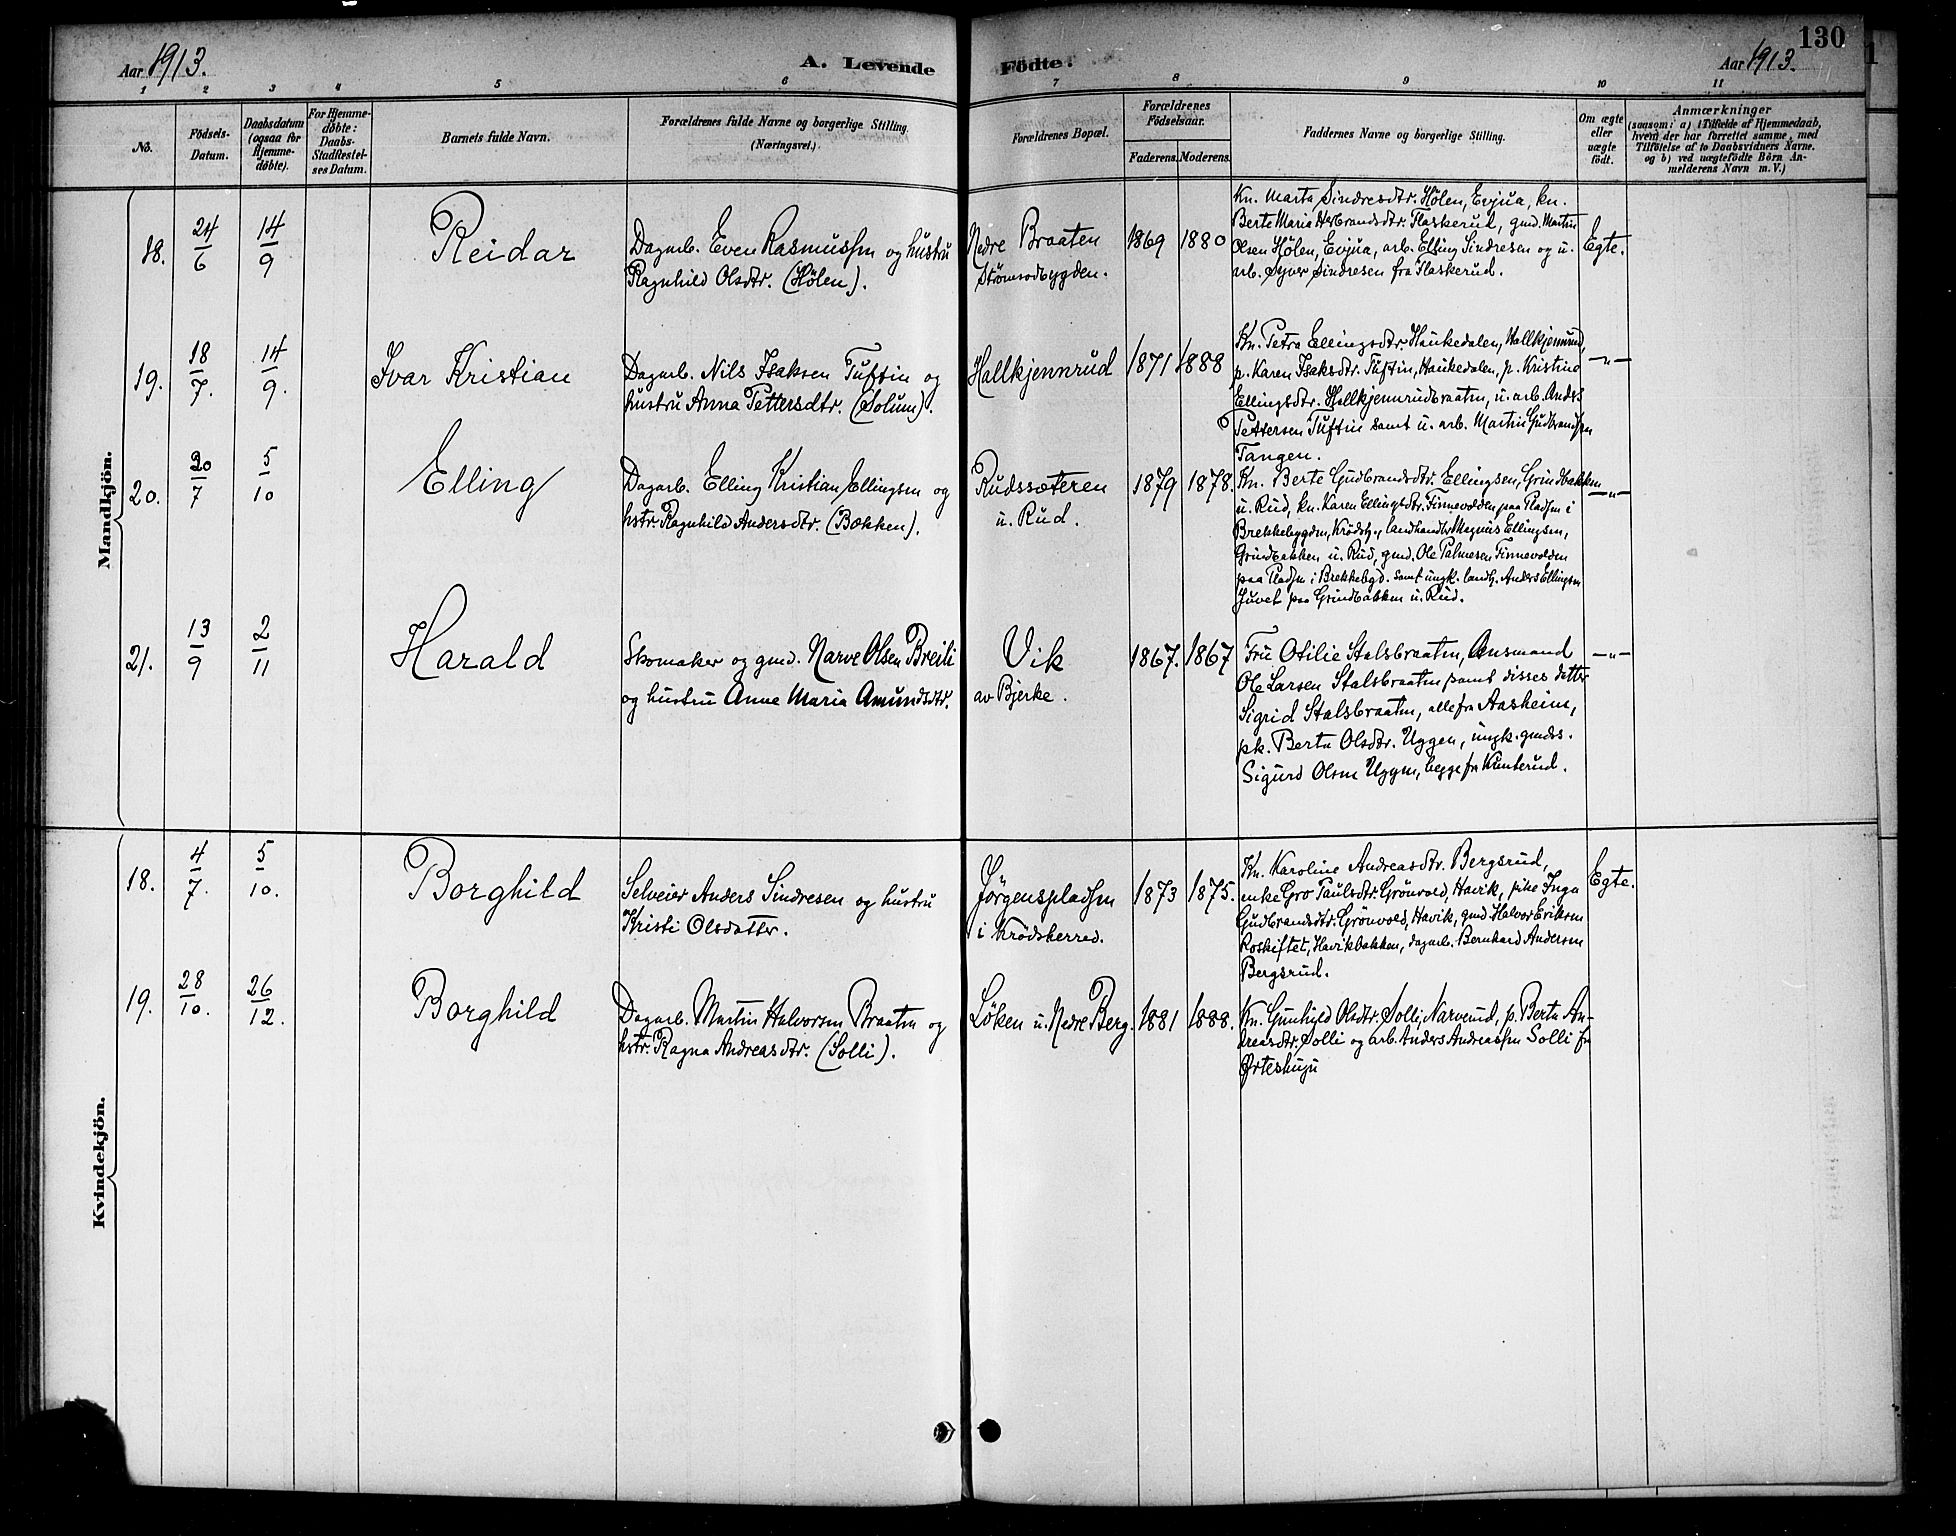 130
Aar 1913.
A. Levende Födte.
Aar 1913.
1 2 3 4 5 6 7 8 9 10 11
No.
Födsels-Datum.
Daabsdatum (ogsaa for Hjemmedöbte).
For Hjemmedöbte: Daabs-Stadfæstelses Datum.
Barnets fulde Navn.
Forældrenes fulde Navne og borgerlige Stilling. (Næringsvei.)
Forældrenes Bopæl.
Forældrenes Födselsaar.
Faderens. Moderens.
Faddernes Navne og borgerlige Stilling.
Om ægte eller uægte födt.
Anmærkninger
(saasom: a) i Tilfælde af Hjemmedaab,
hvem der har forrettet samme, med
Tilföielse af to Daabsvidners Navne.
og b) ved uægtefödte Börn An-
melderens Navn m. V.)
Mandkjön.
18. 24/6 14/9 Reidar
Dagarb. Even Rasmussen og hustru
Ragnhild Olsdtr. (Hölen).
Nedre Braaten
Strömsodbygden.
1869 1880
Kn. Marta Sindresdtr. Hölen, Evjua, kn.
Berte Maria Herbrandsdtr. Flaskerud, gmd. Martin
Olsen Hölen, Evjua, arb. Elling Sindresen og u.
arb. Syver Sindresen fra Flaskerud.
Egte.
19. 18/7. 14/9. Ivar Kristian
Dagarb. Nils Isaksen Tuftin og
hustru Anna Pettersdtr. (Solum).
Hallkjennrud
1871 1888
Kn. Petra Ellingsdtr. Haukedalen, Hallkjennrud,
p. Karen Isaksdtr. Tuftin, Haukedalen, p. Kristine
Ellingsdtr. Hallkjennrudbraaten, u. arb. Anders
Pettersen Tuftin samt u. arb. Martin Gudbrandsen
Tangen.
—"—
20. 20/7 5/10 Elling
Dagarb. Elling Kristian Ellingsen og
hstr. Ragnhild Andersdtr. (Bækken).
Rudssæteren
u. Rud.
1879 1878.
Kn. Berte Gudbrandsdtr. Ellingsen, Grindbakken
u. Rud, kn. Karen Ellingsdtr. Finnevolden paa Pladsen i
Brekkebygden, Krödsh., landhandler Magnus Ellingsen,
Grindbakken u. Rud, gmd. Ole Palmesen Finnevolden
paa Pladsen i Brekkebygd. samt ungk. landh. Anders Ellingsen
Juvet paa Grindbakken u. Rud.
—"—
21. 13/9 2/11 Harald
Skomaker og gmd. Narve Olsen Breili
og hustru Anne Maria Amundsdtr.
Vik
av Bjerke.
1867. 1867
Fru Otilie Stalsbraaten, Ansmand
Ole Larsen Stalsbraaten samt disses datter
Sigrid Stalsbraaten, alle fra Aasheim,
pk. Berta Olsdtr. Uggen, ungk. gmds.
Sigurd Olsen Uggen, begge fra
—"—
Kvindekjön.
18. 4/7. 5/10. Borghild
Selveier Anders Sindresen og hustru
Kristi Olsdatter.
Jörgenspladsen
i Krödsherred.
1873 1875.
Kn. Karoline Andreasdtr. Bergsrud,
enke Gro Paulsdtr. Grönvold, Havik, pike Inga
Gudbrandsdtr. Grönvold, Havik, gmd. Halvor Eriksen
Roskiftet, Havikbakken, dagarb. Bernhard Andersen
Bergsrud.
Egte.
19. 28/10. 26/12. Borghild
Dagarb. Martin Halvorsen Braaten og
hstr. Ragna Andreasdtr. (Solli).
Löken u. Nedre Berg.
1881 1888.
Kn. Gunhild Olsdtr. Solli, Narverud, p. Berta An-
dreasdtr. Solli og arb. Anders Andreassen Solli fra